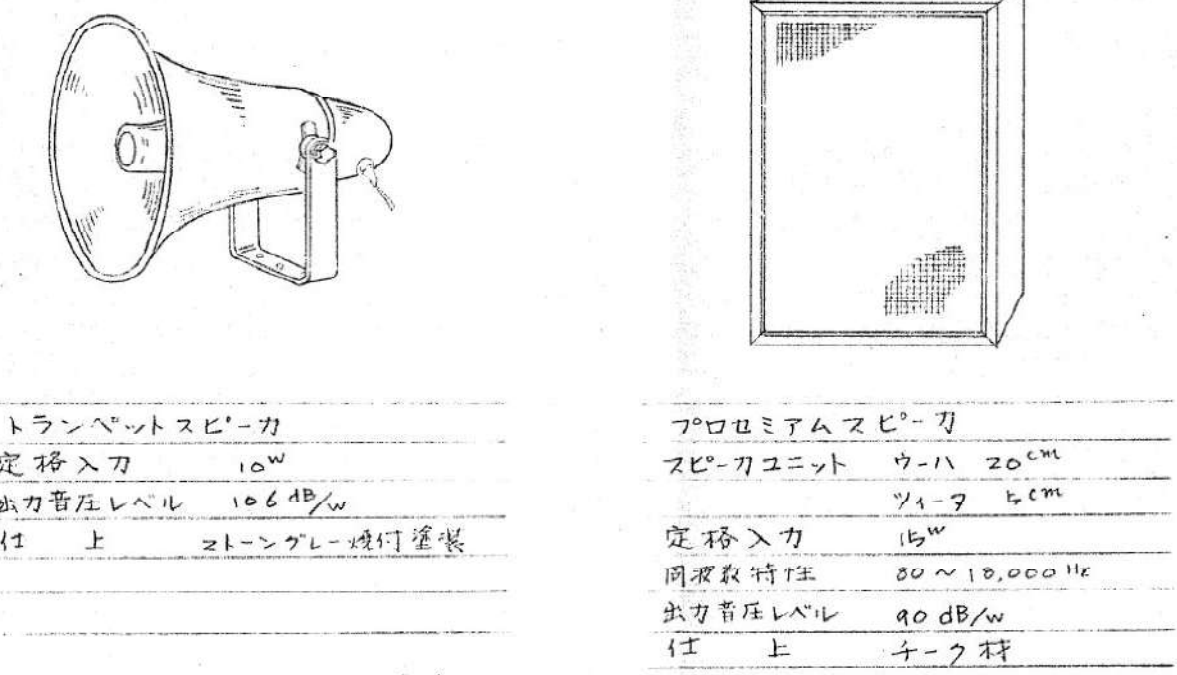 トランペットスピーカ
定格入力 10W
出力音圧レベル 106 dB/W
仕 上 2トーングレー焼付塗装
プロセミアムスピーカ
スピーカユニット ウーハ 20cm
ツィータ 5cm
定格入力 15W
周波数特性 80～18,000 Hz
出力音圧レベル 90 dB/W
仕 上 チーク材